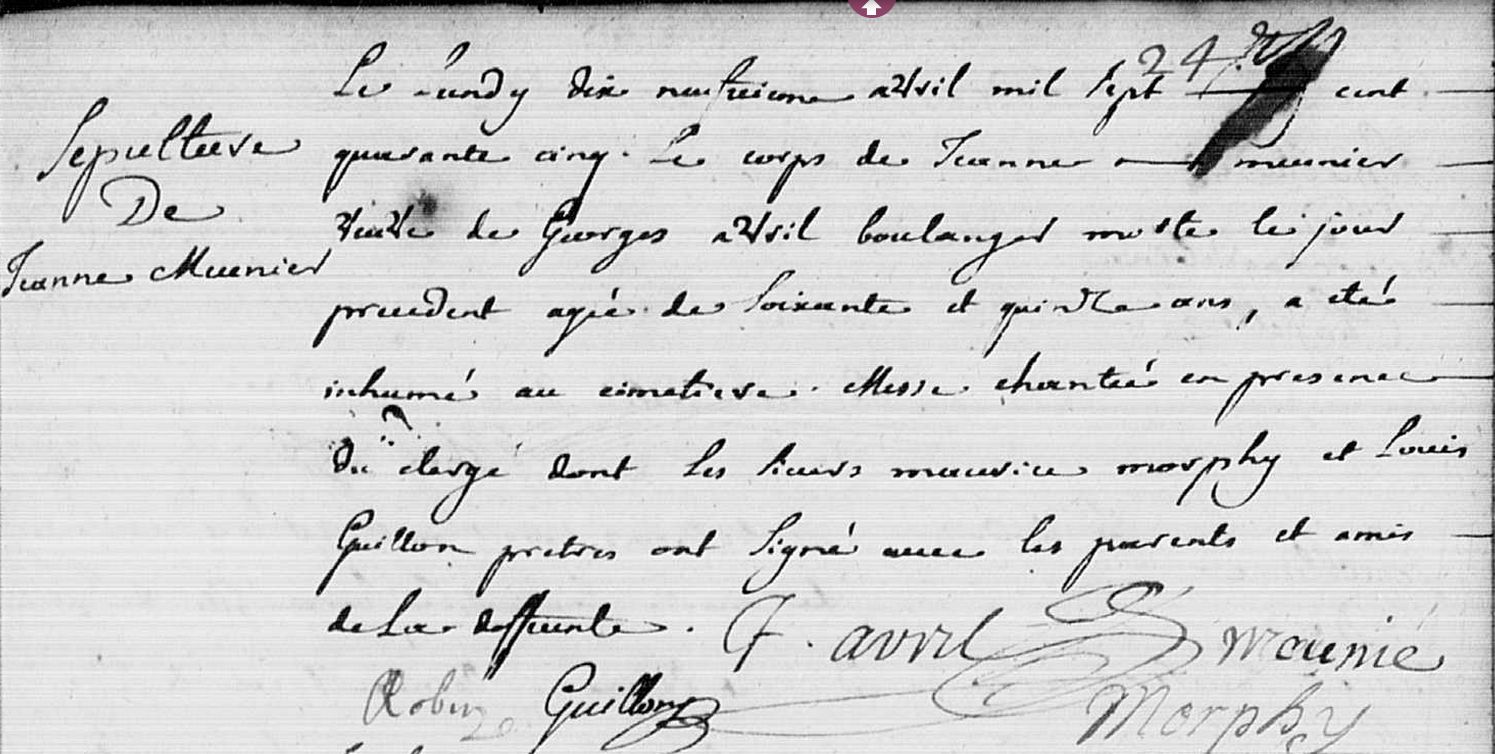 Sepulture
De
Jeanne Meunier
24
Le Lundy dix neufvieme avril mil sept cent
quarante cinq. Le corps de Jeanne meunier
veuve de Georges avril boulanger morte le jour
precedent agée de soixante et quinze ans, a eté
inhumé au cimetiere. Messe chantée en presence
du clergé dont les sieurs maurice morphy et Louis
Guillon pretres ont signé avec les parents et amis
de La deffunte. F. avril mounié
Robin Guillon Morphy